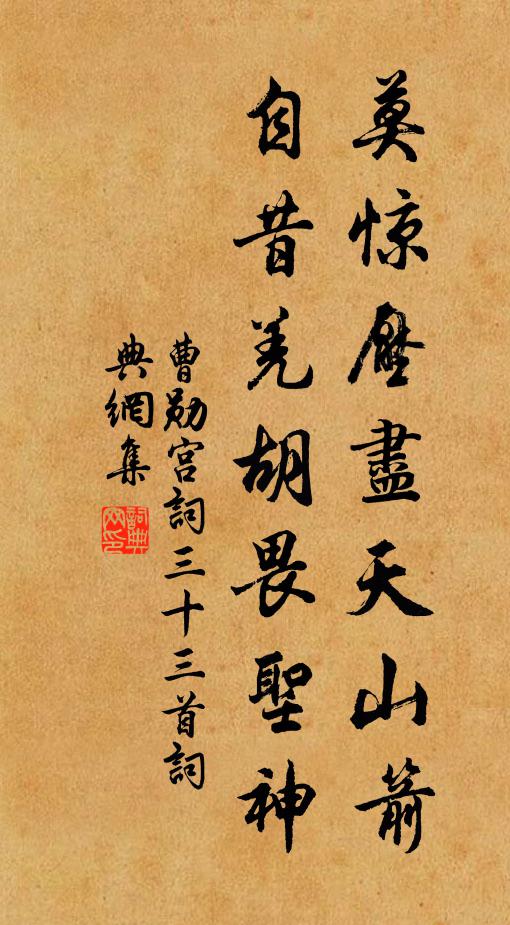 莫惊壓盡天山箭
自昔羌胡畏聖神
曹勛宮詞三十三首詞
典網集
詞典网印